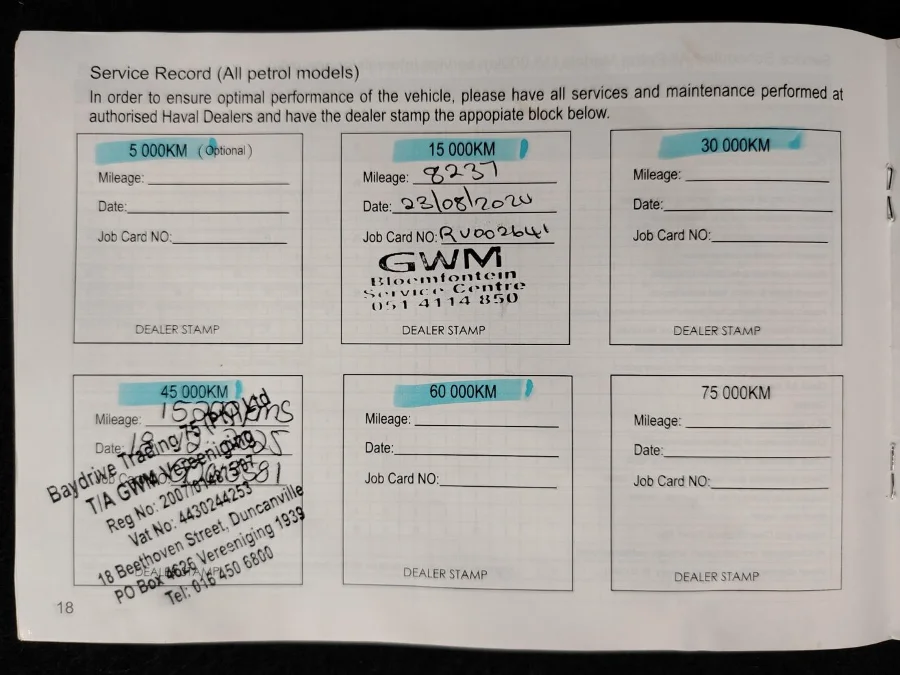 Service Record (All petrol models)
In order to ensure optimal performance of the vehicle, please have all services and maintenance performed at
authorised Haval Dealers and have the dealer stamp the appopiate block below.
5 000KM (Optional)
Mileage:
Date:
Job Card NO:
DEALER STAMP
15 000KM
Mileage: 8237
Date: 23/08/2020
Job Card NO: RV002641
GWM
Bloemfontein
Service Centre
051 4114 850
DEALER STAMP
30 000KM
Mileage:
Date:
Job Card NO:
DEALER STAMP
45 000KM
Mileage:
Date:
Baydrive Trading 75 (Pty) Ltd
T/A GWM Vereeniging
Reg No:
Vat No: 4430244253
18 Beethoven Street, Duncanville
PO Box 4626 Vereeniging 1939
Tel: 016 450 6800
DEALER STAMP
60 000KM
Mileage:
Date:
Job Card NO:
DEALER STAMP
75 000KM
Mileage:
Date:
Job Card NO:
DEALER STAMP
18